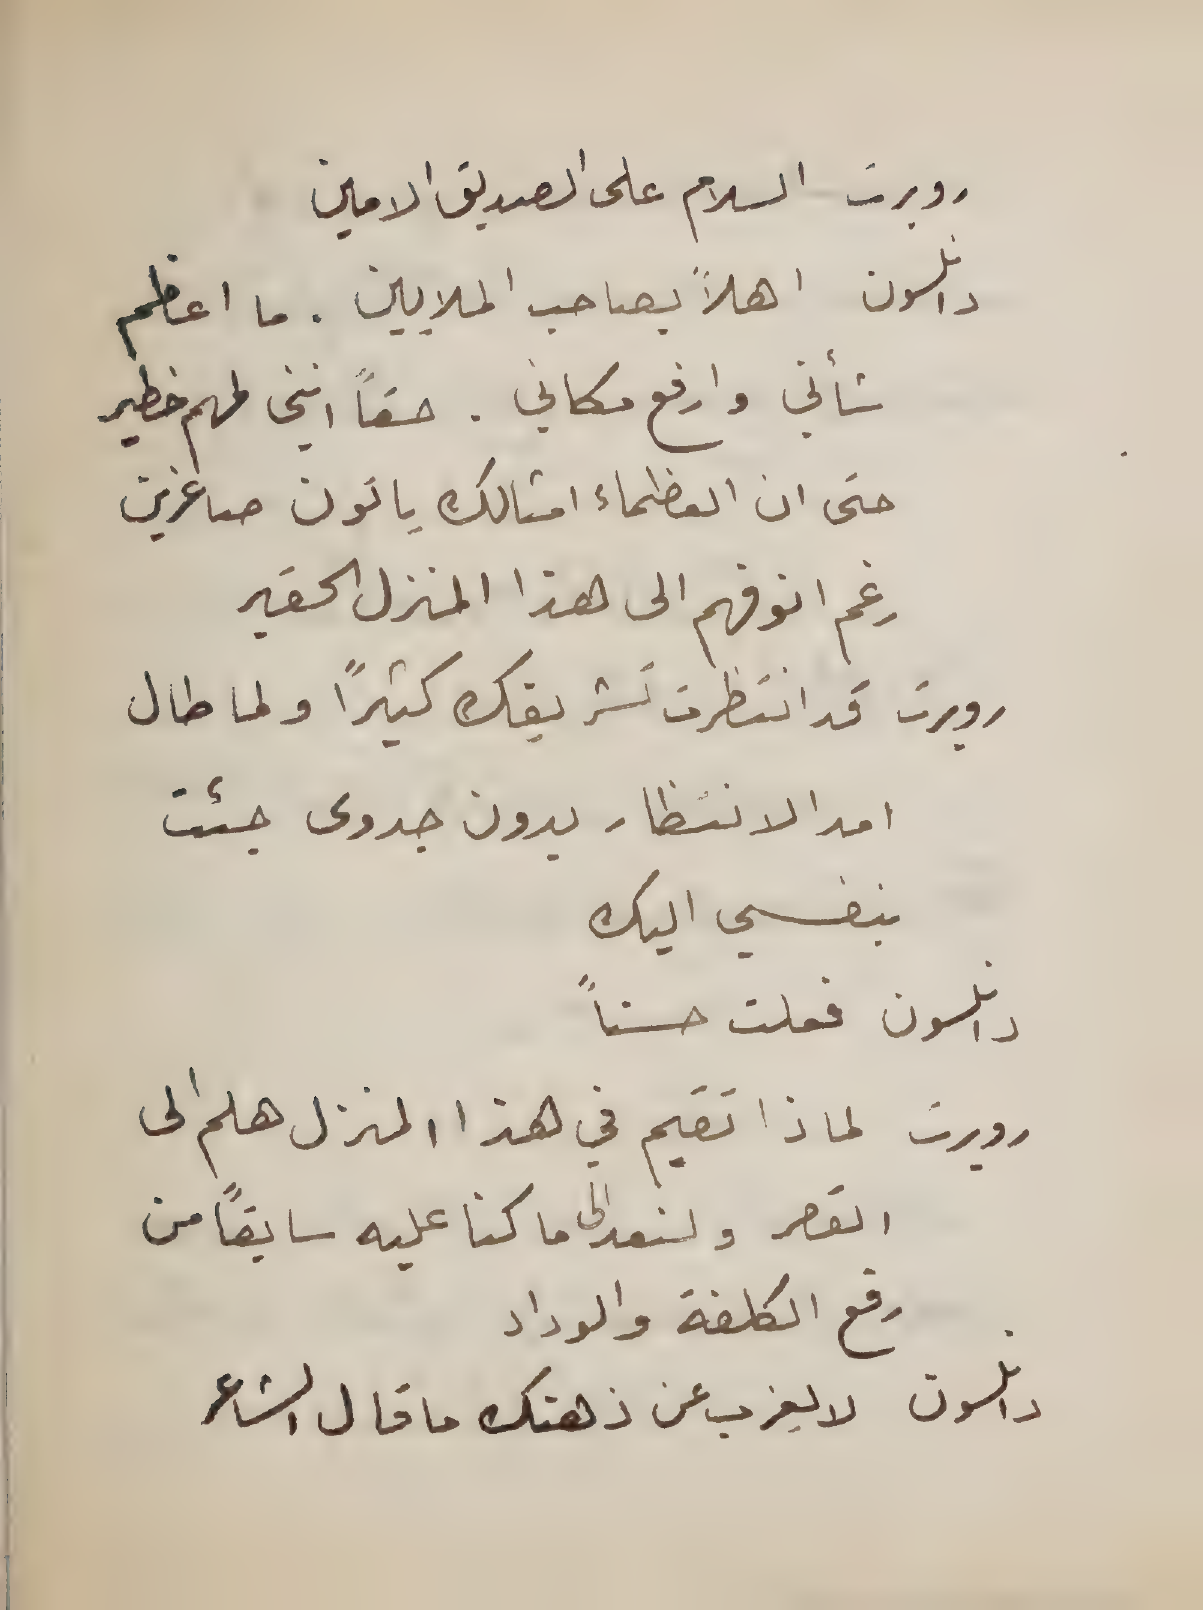 روبرت السلام على الصديق الامين
دانلسون اهلاً بصاحب الملايين . ما اعظم
شأني وارفع مكاني . حقاً انني لمهم خطير
حتى ان العظماء امثالك ياتون صاغرين
رغم انوفهم الى هذا المنزل الحقير
روبرت قد انتظرت تشريفك كثيرًا ولما طال
امد الانتظار بدون جدوى جئت
بنفسي اليك
دانلسون فعلت حسناً
روبرت لماذا تقيم في هذا المنزل هلم الى
القصر ولنعد الى ما كنا عليه سابقًا من
رفع الكلفة والوداد
دانلسون لا يعزب عن ذهنك ما قال الشاعر